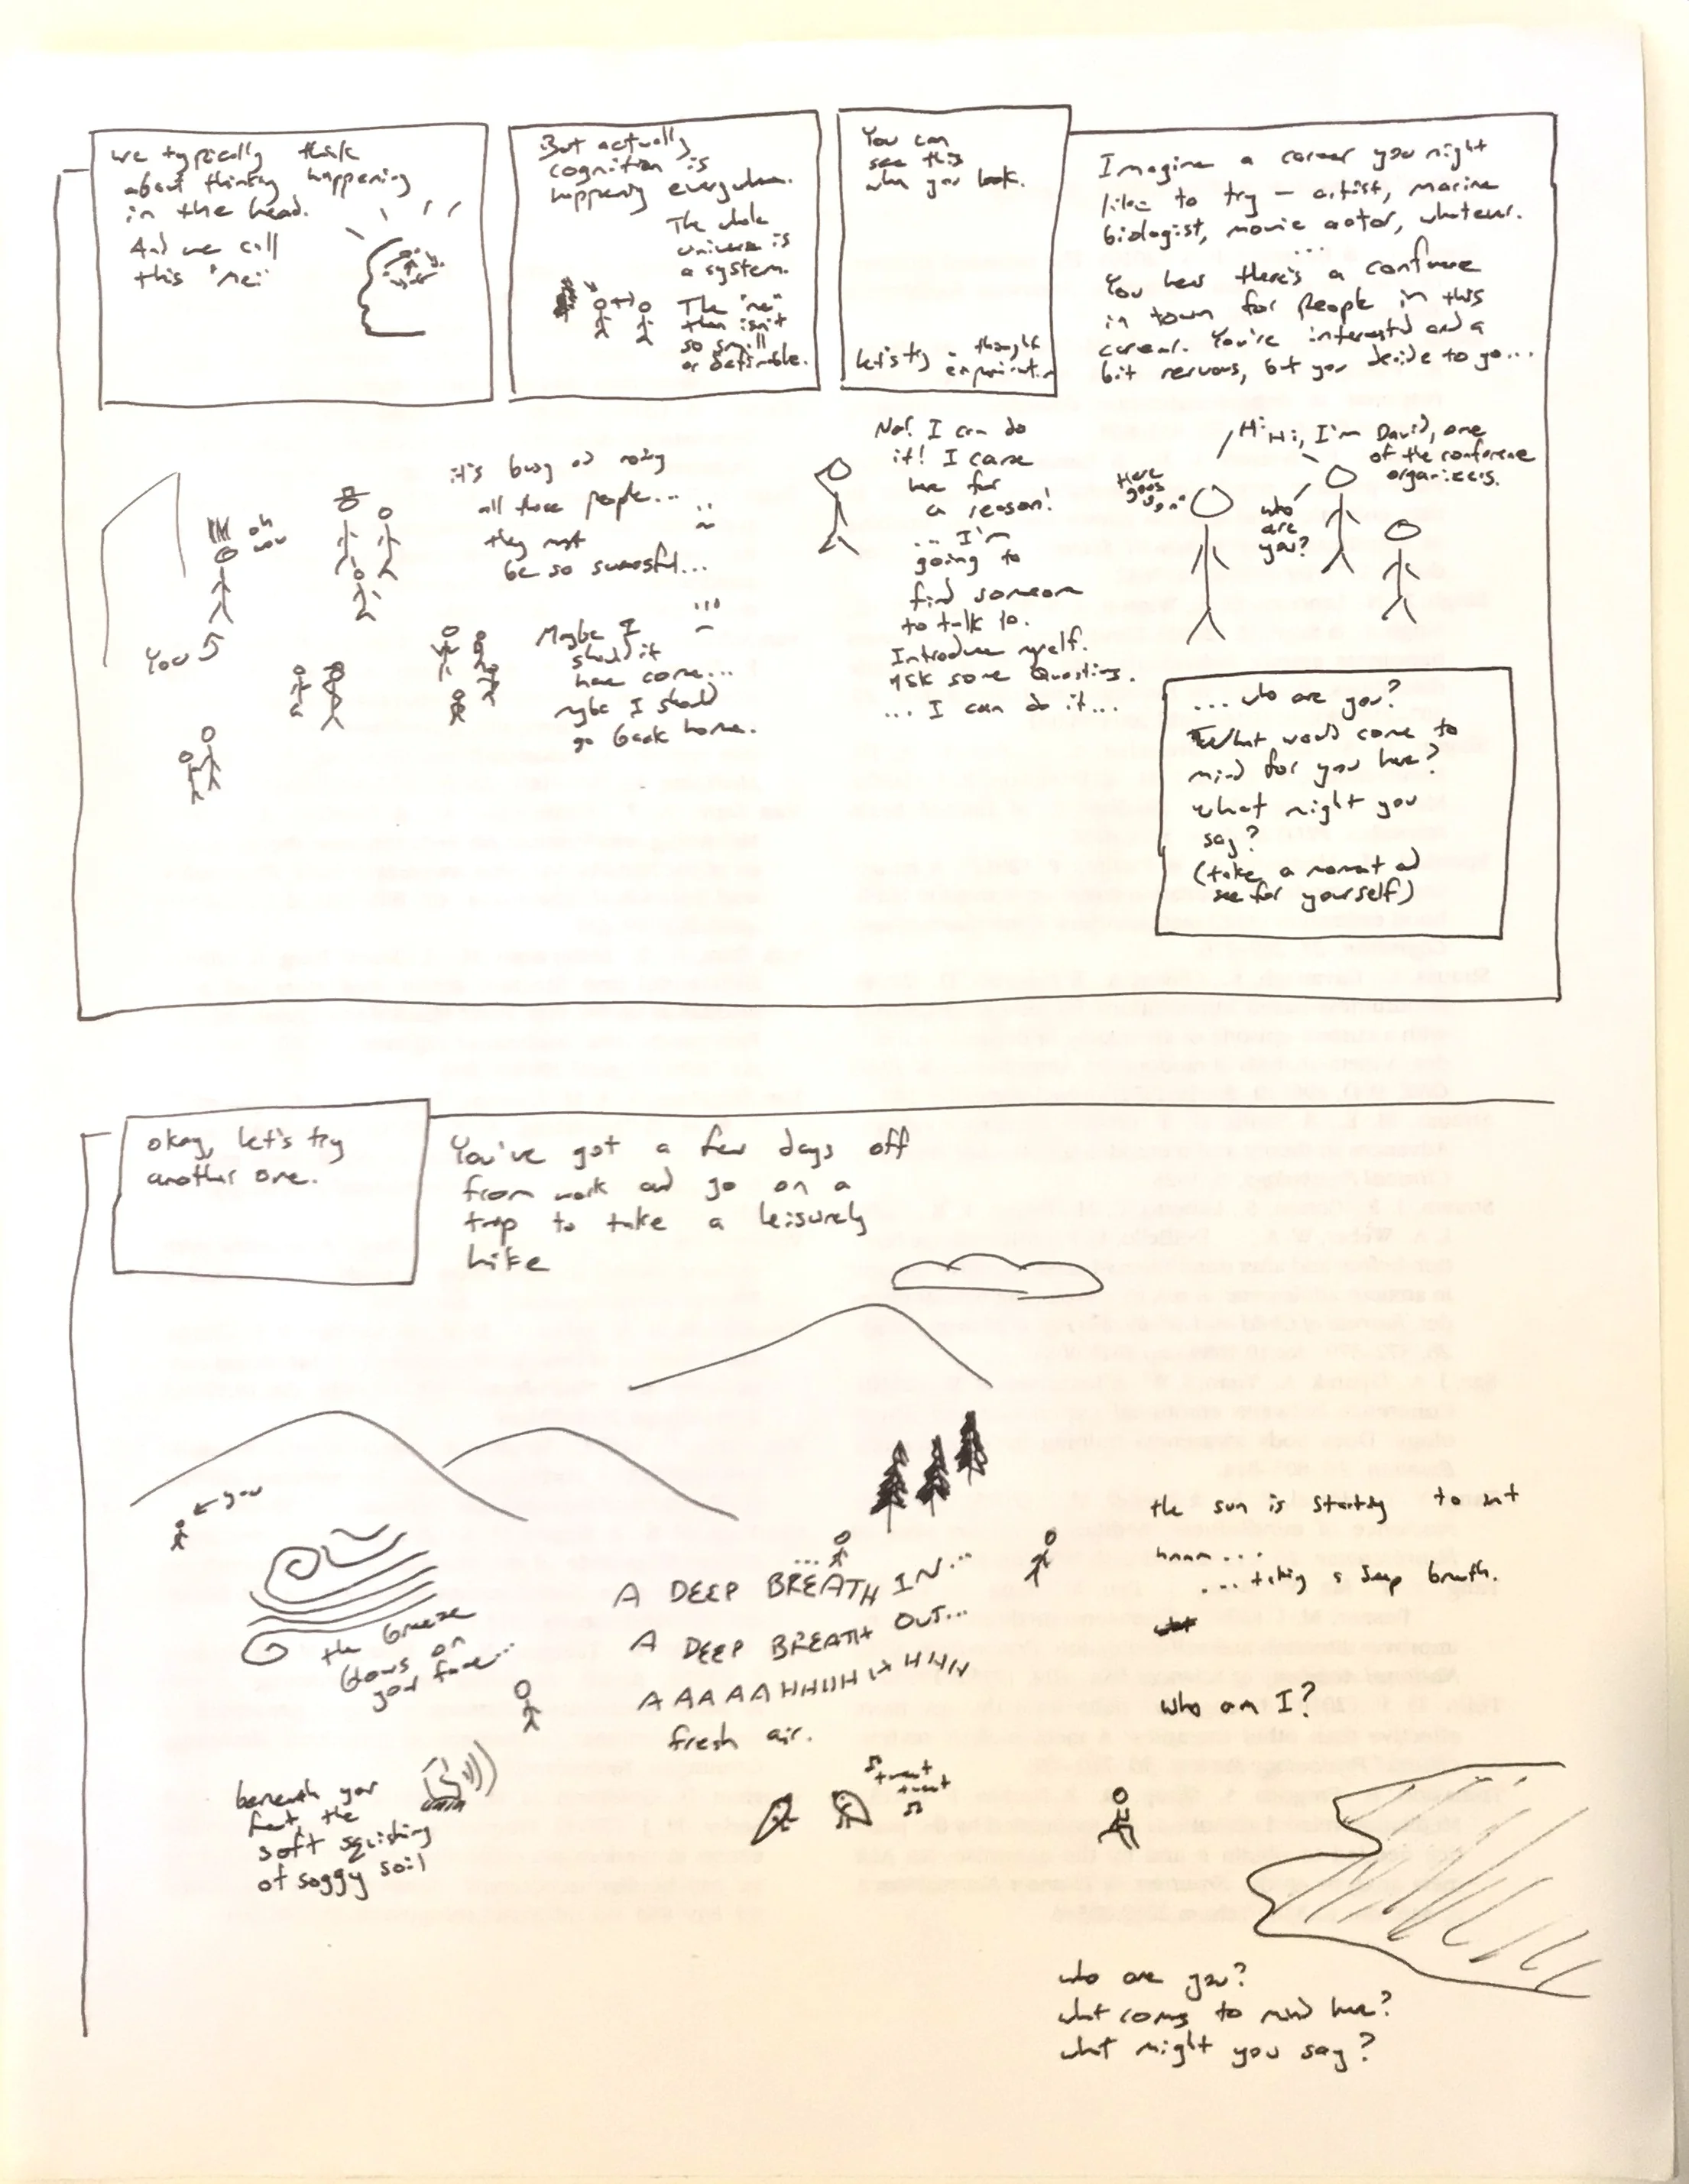 we typically think
about thinking happening
in the head.
And we call
this "me"
But actually
cognition is
happening everywhere.
The whole
universe is
a system.
The "me"
then isn't
so small
or definable.
You can
see this
when you look.
let's try a thought
experiment.
Imagine a career you might
like to try – artist, marine
biologist, movie actor, whatever.
You hear there's a conference
in town for people in this
career. You're interested and a
bit nervous, but you decide to go...
You
oh
wow
it's busy and noisy
all those people...
they must
be so successful...
Maybe I
shouldn't
have come...
maybe I should
go back home.
No! I can do
it! I came
here for
a reason!
... I'm
going to
find someone
to talk to.
Introduce myself.
Ask some questions.
... I can do it...
Here
goes
Hi
Hi, I'm David, one
of the conference
organizers.
who
are
you?
... who are you?
What would come to
mind for you here?
what might you
say?
(take a moment and
see for yourself)
okay, let's try
another one.
You've got a few days off
from work and go on a
trip to take a leisurely
hike
← you
the breeze
blows on
your face...
beneath your
feet, the
soft squishing
of soggy soil
...
A DEEP BREATH IN...
A DEEP BREATH OUT...
A AAAAHHHHHHHH
fresh air.
tweet
tweet
the sun is starting to set
hmm...
...taking a deep breath.
who am I?
who are you?
what comes to mind here?
what might you say?